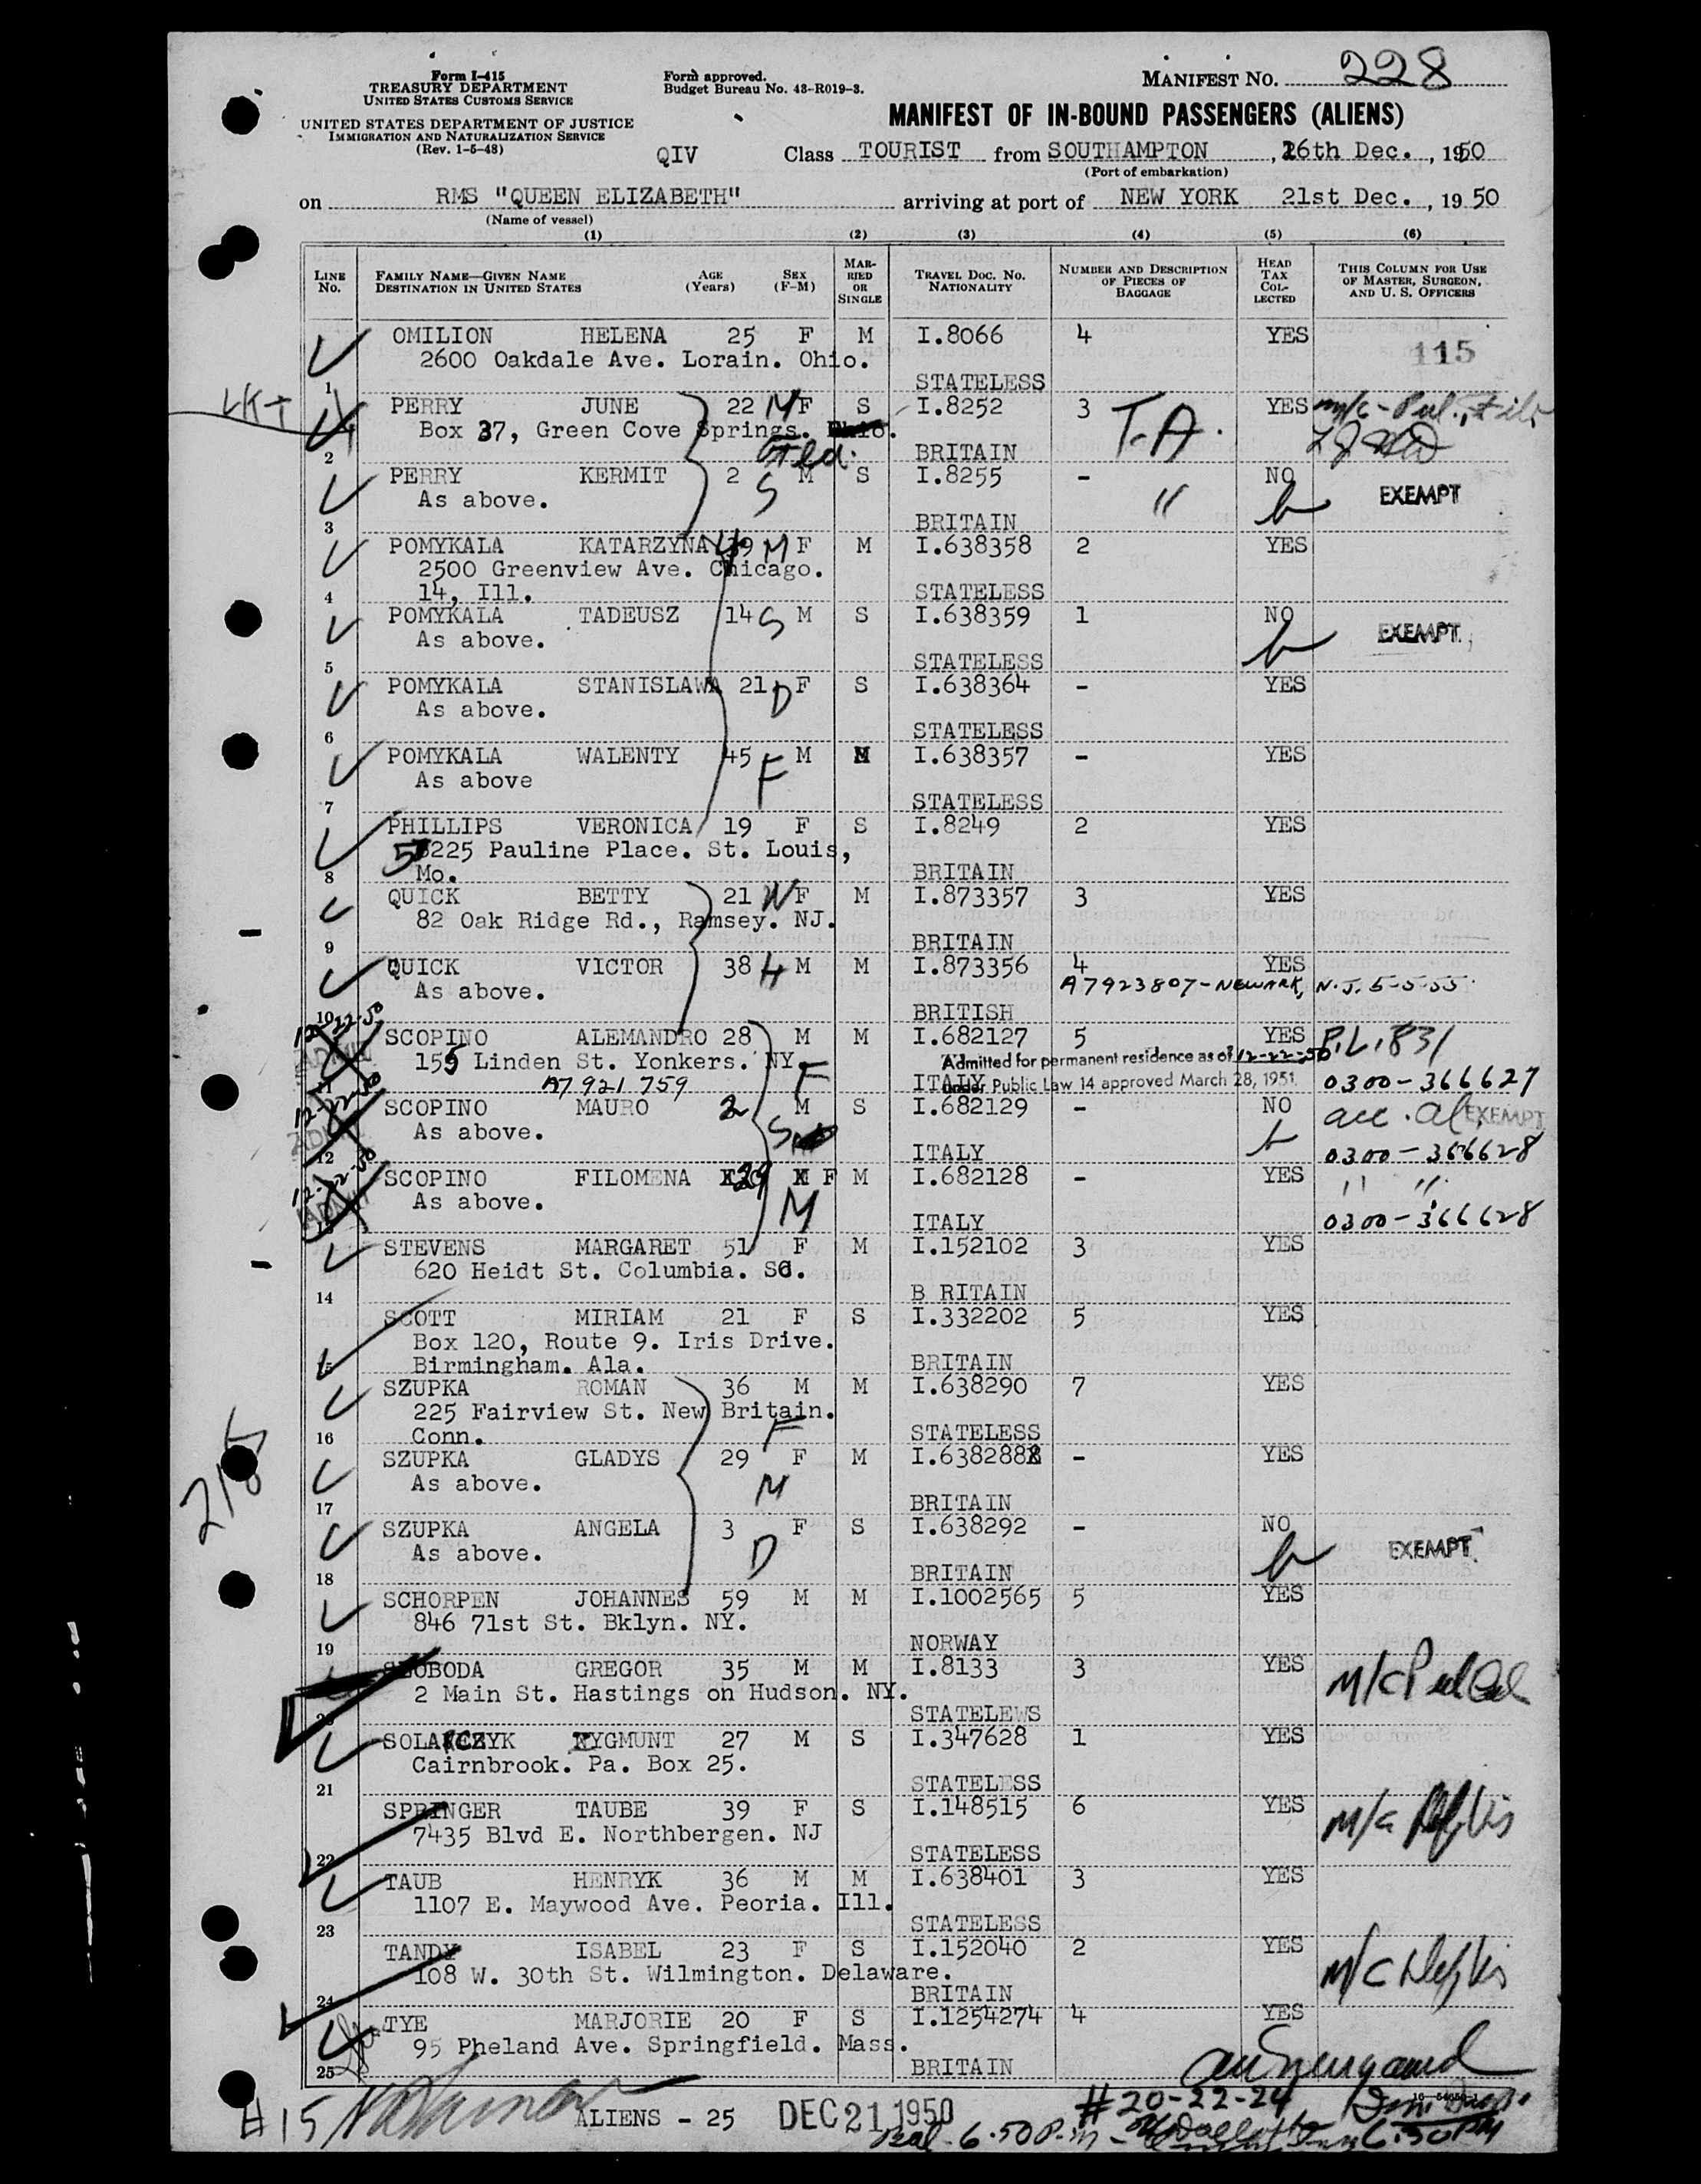 Form I-415
TREASURY DEPARTMENT
UNITED STATES CUSTOMS SERVICE
UNITED STATES DEPARTMENT OF JUSTICE
IMMIGRATION AND NATURALIZATION SERVICE
(Rev. 1-5-48)
Form approved.
Budget Bureau No. 43-R019-3.
MANIFEST NO. 228
MANIFEST OF IN-BOUND PASSENGERS (ALIENS)
QIV Class TOURIST from SOUTHAMPTON, 16th Dec., 1950
(Port of embarkation)
on RMS "QUEEN ELIZABETH" arriving at port of NEW YORK 21st Dec., 19 50
(Name of vessel)
(1) (2) (3) (4) (5) (6)
LINE No. FAMILY NAME—GIVEN NAME DESTINATION IN UNITED STATES AGE (Years) SEX (F-M) MARRIED OR SINGLE TRAVEL DOC. NO. NATIONALITY NUMBER AND DESCRIPTION OF PIECES OF BAGGAGE HEAD TAX COLLECTED THIS COLUMN FOR USE OF MASTER, SURGEON, AND U. S. OFFICERS
OMILION HELENA 25 F M I.8066 4 YES
2600 Oakdale Ave. Lorain. Ohio. 115
1 STATELESS
PERRY JUNE 22 M F S I.8252 3 T.A. YES
Box 37, Green Cove Springs. Fla.
2 BRITAIN
PERRY KERMIT 2 M S I.8255 - NO
As above. S " EXEMPT
3 BRITAIN
POMYKALA KATARZYNA 49 M F M I.638358 2 YES
2500 Greenview Ave. Chicago.
4 14, Ill. STATELESS
POMYKALA TADEUSZ 14 S M S I.638359 1 NO
As above. EXEMPT
5 STATELESS
POMYKALA STANISLAWA 21 D F S I.638364 - YES
As above.
6 STATELESS
POMYKALA WALENTY 45 M M I.638357 - YES
As above F
7 STATELESS
PHILLIPS VERONICA 19 F S I.8249 2 YES
5225 Pauline Place. St. Louis,
8 Mo. BRITAIN
QUICK BETTY 21 W F M I.873357 3 YES
82 Oak Ridge Rd., Ramsey. NJ.
9 BRITAIN
QUICK VICTOR 38 H M M I.873356 4 YES
As above. A7923807-NEWARK, N.J. 5-5-55
10 BRITISH
12-22-50 SCOPINO ALEMANDRO 28 M M I.682127 5 YES P.L. 831
155 Linden St. Yonkers. NY. F Admitted for permanent residence as of 12-22-50
11 A7 921 759 ITALY under Public Law 14 approved March 28, 1951. 0300-366627
12-22-50 SCOPINO MAURO 2 M S I.682129 - NO acc. al EXEMPT
As above. S
12 ITALY 0300-366628
12-22-50 SCOPINO FILOMENA 29 F M I.682128 - YES " "
As above. M
13 ITALY 0300-366628
STEVENS MARGARET 51 F M I.152102 3 YES
620 Heidt St. Columbia. SC.
14 B RITAIN
SCOTT MIRIAM 21 F S I.332202 5 YES
Box 120, Route 9. Iris Drive.
15 Birmingham. Ala. BRITAIN
SZUPKA ROMAN 36 M M I.638290 7 YES
225 Fairview St. New Britain.
16 Conn. F STATELESS
SZUPKA GLADYS 29 F M I.638288 - YES
As above. M
17 BRITAIN
SZUPKA ANGELA 3 F S I.638292 - NO
As above. D EXEMPT
18 BRITAIN
SCHORPEN JOHANNES 59 M M I.1002565 5 YES
846 71st St. Bklyn. NY.
19 NORWAY
SLOBODA GREGOR 35 M M I.8133 3 YES
2 Main St. Hastings on Hudson. NY.
20 STATELEWS
SOLARCZYK ZYGMUNT 27 M S I.347628 1 YES
Cairnbrook. Pa. Box 25.
21 STATELESS
SPRINGER TAUBE 39 F S I.148515 6 YES
7435 Blvd E. Northbergen. NJ
22 STATELESS
TAUB HENRYK 36 M M I.638401 3 YES
1107 E. Maywood Ave. Peoria. Ill.
23 STATELESS
TANDY ISABEL 23 F S I.152040 2 YES
108 W. 30th St. Wilmington. Delaware.
24 BRITAIN
TYE MARJORIE 20 F S I.1254274 4 YES
95 Pheland Ave. Springfield. Mass.
25 BRITAIN
#15 ALIENS - 25 DEC 21 1950 #20-22-24
6.50 P.M. 6.50PM